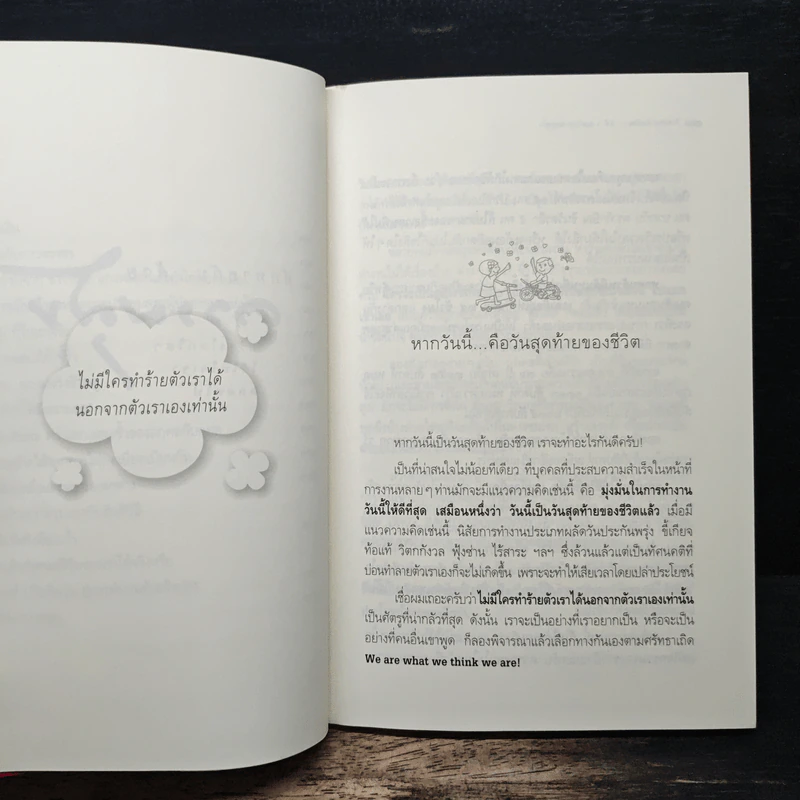 ไม่มีใครทำร้ายตัวเราได้
นอกจากตัวเราเองเท่านั้น
หากวันนี้...คือวันสุดท้ายของชีวิต
หากวันนี้เป็นวันสุดท้ายของชีวิต เราจะทำอะไรกันดีครับ!
เป็นที่น่าสนใจไม่น้อยทีเดียว ที่บุคคลที่ประสบความสำเร็จในหน้าที่
การงานหลายๆ ท่านมักจะมีแนวความคิดเช่นนี้ คือ มุ่งมั่นในการทำงาน
วันนี้ให้ดีที่สุด เสมือนหนึ่งว่า วันนี้เป็นวันสุดท้ายของชีวิตแล้ว เมื่อมี
แนวความคิดเช่นนี้ นิสัยการทำงานประเภทผลัดวันประกันพรุ่ง ขี้เกียจ
ท้อแท้ วิตกกังวล ฟุ้งซ่าน ไร้สาระ ฯลฯ ซึ่งล้วนแล้วแต่เป็นทัศนคติที่
บ่อนทำลายตัวเราเองก็จะไม่เกิดขึ้น เพราะจะทำให้เสียเวลาโดยเปล่าประโยชน์
เชื่อผมเถอะครับว่า ไม่มีใครทำร้ายตัวเราได้นอกจากตัวเราเองเท่านั้น
เป็นศัตรูที่น่ากลัวที่สุด ดังนั้น เราจะเป็นอย่างที่เราอยากเป็น หรือจะเป็น
อย่างที่คนอื่นเขาพูด ก็ลองพิจารณาแล้วเลือกทางกันเองตามศรัทธาเถิด
We are what we think we are!